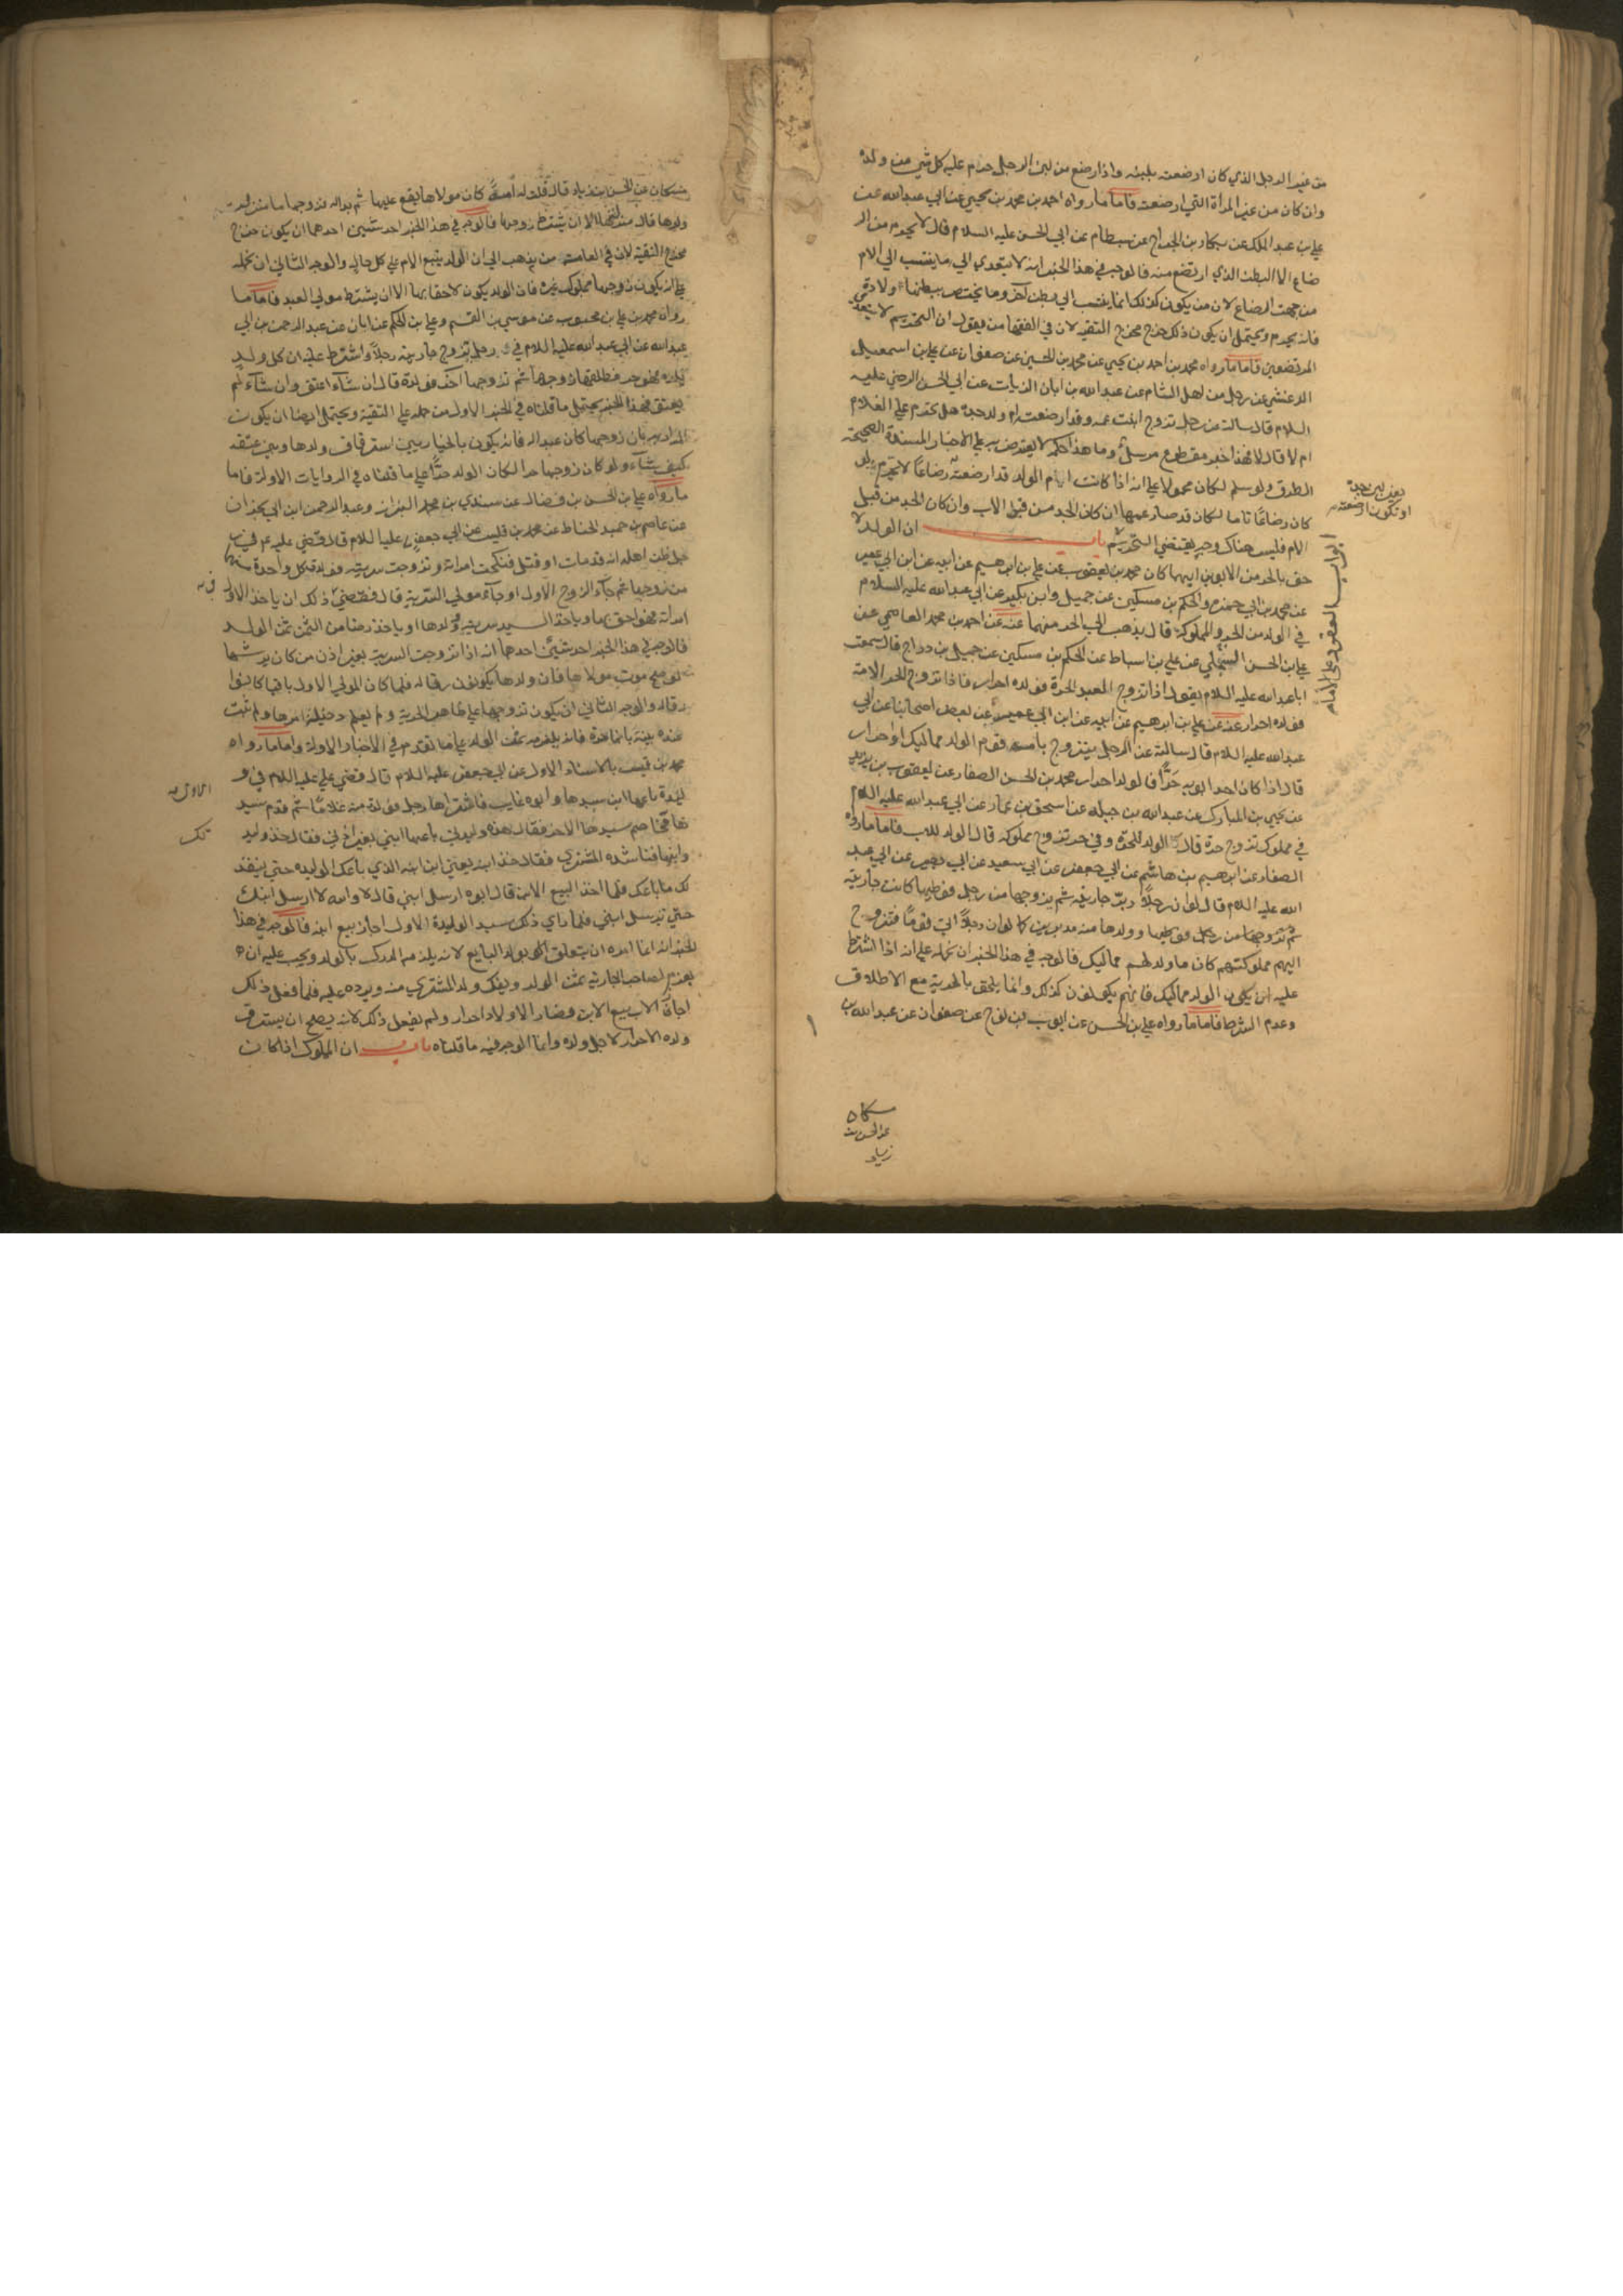 من غير الرجل الذي كان ارضعته بلبنه واذا رضع من لبن الرجل حرم عليه كل شي من ولده
وان كان من غير المراة التي ارضعته فاما ما رواه احمد بن محمد بن يحيي عن ابي عبدالله عن
علي بن عبد الملك عن بكار بن الجراح عن بسطام عن ابي الحسن عليه السلام قال لا يحرم من الر
ضاع الا البطن الذي ارتضع منه فالوجه في هذا الخبر انه لا يتعدي الي ما ينتسب الي الام
من جهت الرضاع لان من يكون كذلك انما ينتسب الي بطن آخر وما يختص ببطنها ولادة
فانه يحرم ويحتمل ان يكون ذلك خرج مخرج التقية لان في الفقها من يقول ان التحريم لا يتعدي
المرتضعين فاما ما رواه محمد بن احمد بن يحيي عن محمد بن الحسين عن صفوان عن علي بن اسمعيل
الدغشي عن رجل من اهل الشام عن عبدالله بن ابان الزيات عن ابي الحسن الرضي عليه
السلام قال سالته عن رجل تزوج ابنت عمه وقد ارضعته ام ولد جده هل تحرم علي الغلام
ام لا قال لا فهذا خبر مقطوع مرسل وما هذا حكمه لا يعترض به علي الاخبار المسندة الصحيحة
الطرق ولو سلم لكان محمولا علي انه اذا كانت ام الولد قد ارضعته رضاعا لا يحرم ولو
كان رضاعًا تاما لكان قد صار عمها ان كان الجد من قبل الاب وان كان الجد من قبل
الام فليس هناك وجه يقتضي التحريم باب ان الولد لا
حق بالحر من الابوين ايهما كان محمد بن يعقوب عن علي بن ابرهيم عن ابيه عن ابن ابي عمير
عن محمد بن ابي حمزه والحكم بن مسكين عن جميل وابن بكير عن ابي عبدالله عليه السلام
في الولد من الحر والمملوكة قال يذهب الي الحر منهما عنه عن احمد بن محمد العاصمي عن
علي بن الحسن التيملي عن علي بن اسباط عن الحكم بن مسكين عن جميل بن دراج قال سمعت
ابا عبدالله عليه السلام يقول اذا تزوج العبد الحرة فولده احرار فاذا تزوج الحر الامة
فولده احرار عنه عن علي بن ابرهيم عن ابيه عن ابن ابي عمير عن بعض اصحابنا عن ابي
عبدالله عليه السلام قال سالته عن الرجل يتزوج بامة قوم الولد مماليك او احرار
قال اذا كان احد ابويه حرًّا فالولد احرار محمد بن الحسن الصفار عن يعقوب بن يزيد
عن يحيي بن المبارك عن عبدالله بن جبله عن اسحق بن عمار عن ابي عبدالله عليه السلام
في مملوك تزوج حرة قال الولد للحرة وفي حر تزوج مملوكه قال الولد للاب فاما ما رواه
الصفار عن ابرهيم بن هاشم عن ابي جعفر عن ابي سعيد عن ابي بصير عن ابي عبد
الله عليه السلام قال لو ان رجلاً دبر جاريته ثم زوجها من رجل فوطيها كانت جاريته
وولدها منه مدبرين كما لو ان رجلاً اتي قومًا فتزوج
اليهم مملوكتهم كان ما ولد لهم مماليك فالوجه في هذا الخبر ان نحمله علي انه اذا اشترط
عليه ان يكون الولد مماليك فانهم يكونون كذلك وانما يلحق بالحرية مع الاطلاق
وعدم الشرط فاما ما رواه علي بن الحسن عن ايوب بن نوح عن صفوان عن عبدالله بن
ابواب العقود علي الاماء
مسكان
عن الحسن بن
زياد
مسكان عن الحسن بن زياد قال قلت له امة كان مولاها يقع عليها ثم بدا له فزوجها ما منزلة
ولدها قال منزلتها الا ان يشترط زوجها فالوجه في هذا الخبر احد شيئين احدهما ان يكون خرج
مخرج التقية لان في العامة من يذهب الي ان الولد يتبع الام علي كل حال والوجه الثاني ان نحمله
علي انه يكون زوجها مملوك غيره فان الولد يكون لاحقا بها الا ان يشترط مولي العبد فاما ما
رواه محمد بن علي بن محبوب عن موسي بن القسم وعلي بن الحكم عن ابان عن عبد الرحمن بن ابي
عبدالله عن ابي عبدالله عليه السلام في رجل تزوج جاريته رجلاً واشترط عليه ان كل ولد
تلده فهو حر فطلقها زوجها ثم تزوجها آخر فولدت قال ان شآء اعتق وان شآء لم
يعتق فهذا الخبر يحتمل ما قلناه في الخبر الاول من حمله علي التقية ويحتمل ايضا ان يكون
المراد به بان زوجها كان عبدا له فانه يكون بالخيار بين استرقاق ولدها وبين عتقه
كيف شآء ولو كان زوجها حرا لكان الولد حرًّا علي ما قلناه في الروايات الاولة فاما
ما رواه علي بن الحسن بن فضال عن سندي بن محمد البزاز وعبد الرحمن ابن ابي نجران
عن عاصم بن حميد الحناط عن محمد بن قيس عن ابي جعفر عليه السلام قال قضي علي في
رجل ظن اهله انه قد مات او قتل فنكحت امراته وتزوجت سريته فولدت كل واحدة منهما
من زوجها ثم جآء الزوج الاول او جآء مولي السرية قال فقضي في ذلك ان ياخذ الاول
امراته فهو احق بها وياخذ السيد سريته وولدها او ياخذ رضا من الثمن ثمن الولد
فالوجه في هذا الخبر احد شيئين احدهما انه اذا تزوجت السرية بغير اذن من كان يرثها
لو صح موت مولاها فان ولدها يكونون رقا له فلما كان المولي الاول باقيا كانوا
رقا له والوجه الثاني ان يكون تزوجها علي ظاهر الحرية ولم يعلم دخيلة امرها ولم تثبت
عنده بينة بانها حرة فانه يلزمه ثمن الولد علي ما تقدم في الاخبار الاولة واما ما رواه
محمد بن قيس بالاسناد الاول عن ابي جعفر عليه السلام قال قضي علي عليه السلام في و
ليدة باعها ابن سيدها وابوه غايب فاشتراها رجل فولدت منه غلامًا ثم قدم سيد
ها فخاصم سيدها الاخر فقال هذه وليدتي باعها ابني بغير اذني فقال خذ وليد
وابنها فناشده المشتري فقال خذ ابنه يعني ابنه الذي باعك الوليده حتي ينقذ
لك ما باعك فلما اخذ البيع الابن قال ابوه ارسل ابني قال لا والله لا ارسل ابنك
حتي ترسل ابني فلما راي ذلك سيد الوليدة الاول اجاز بيع ابنه فالوجه في هذا
الخبر انه انما امره ان يتعلق بولد البايع لانه يلزمه الدرك بالولد ويجب عليه ان
يغرم لصاحب الجارية ثمن الولد ويفك ولد المشتري منه ويرده عليه فلما فعل ذلك
اجاز الاب بيع الابن فصار الاولاد احرار ولم يفعل ذلك لانه يصلح ان يسترق
ولده الاحرار لاجل ولده وانما الوجه فيه ما قلناه باب ان المملوك اذا كان